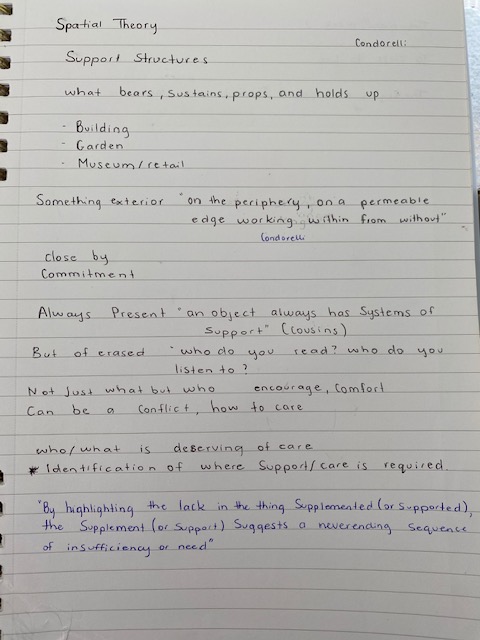 Spatial Theory
Condorelli
Support Structures
what bears, sustains, props, and holds up
- Building
- Garden
- Museum/retail
Something exterior "on the periphery, on a permeable
edge working within from without"
Condorelli
close by
Commitment
Always Present "an object always has Systems of
Support" (Cousins)
But of erased "who do you read? who do you
listen to?
Not just what but who encourage, Comfort
Can be a conflict, how to care
who/what is deserving of care
* Identification of where Support/care is required.
"By highlighting the lack in the thing Supplemented (or Supported),
the Supplement (or Support) Suggests a neverending sequence
of insufficiency or need"